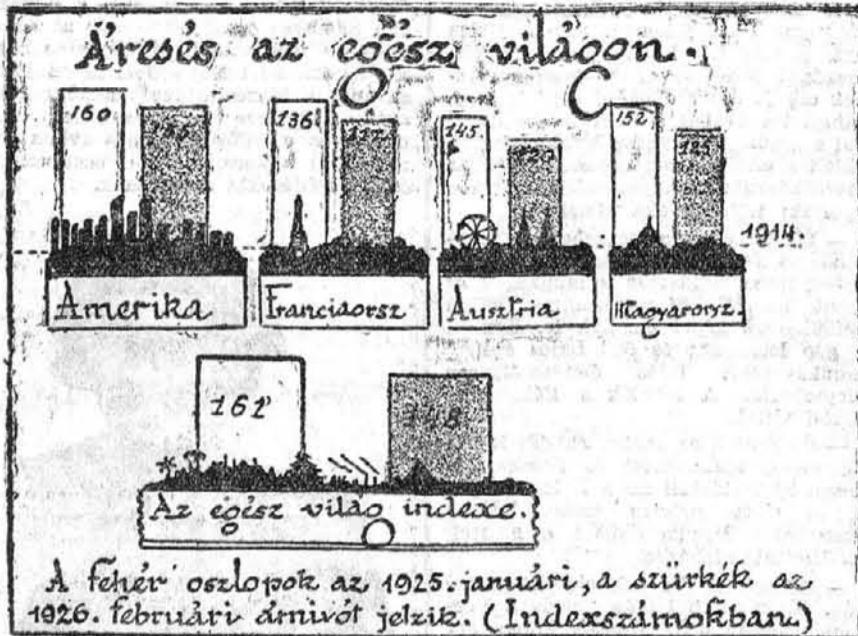 Áresés az egész világon.
160 136 145. 152
120 125
1914.
Amerika Franciaorsz Ausztria Magyarorsz.
162 148
Az egész világ indexe.
A fehér oszlopok az 1925. januári, a szürkék az
1926. februári árnivót jelzik. (Indexszámokban.)